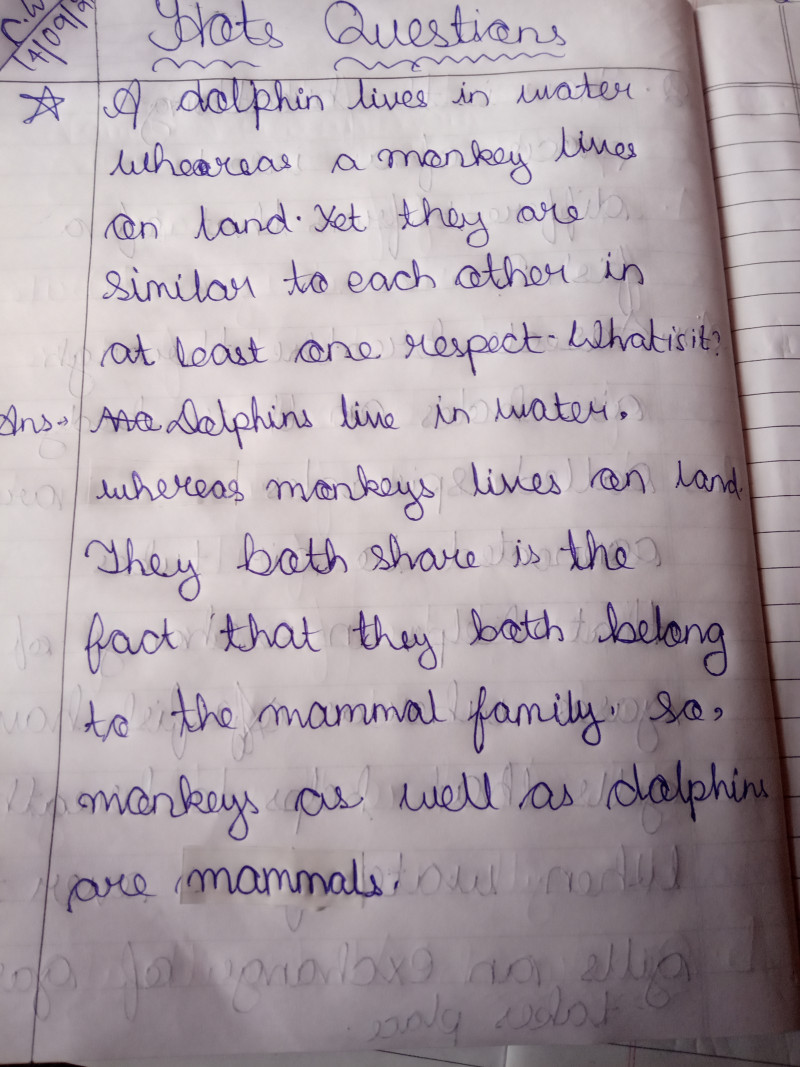 C.W
14/09/2
Hots Questions
☆ A dolphin lives in water
wheareas a monkey lives
on land. Yet they are
similar to each other in
at least one respect. What is it?
Ans→ Dolphins live in water.
whereas monkeys lives on land.
They both share is the
fact that they both belong
to the mammal family. So,
monkeys as well as dolphins
are mammals.